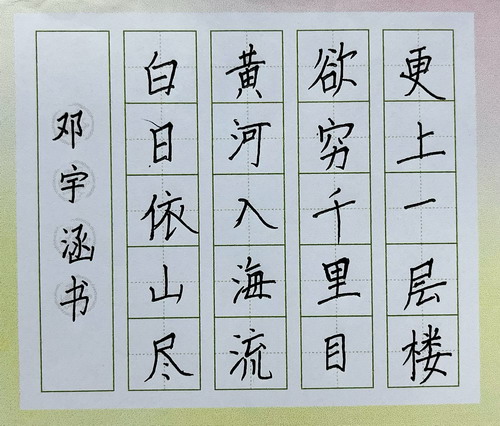 白日依山尽
黄河入海流
欲穷千里目
更上一层楼
邓宇涵书